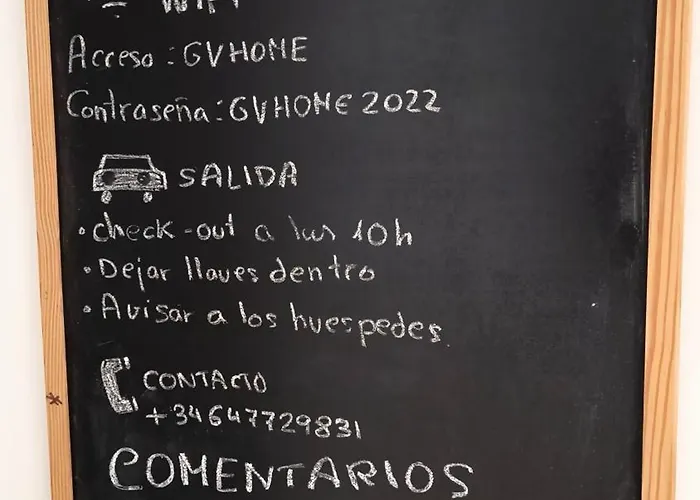 WIFI
Acceso: GVHOME
Contraseña: GVHOME2022
SALIDA
• check-out a las 10h
• Dejar llaves dentro
• Avisar a los huespedes
CONTACTO
+34647729831
COMENTARIOS